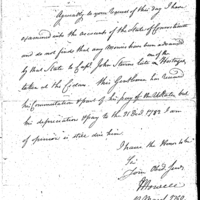 Agreeably to your request of this day I have
examined into the accounts of the State of Connecticut
and do not finde that any monies have been advanced
by that State to Capt. John Stevens late a Hostage
taken at the Cedars. This Gentleman has received
his Commutation & part of his pay of the UStates, but
his depreciation & pay to the 31 Decr. 1782 I am
of opinion is still due him
I have the Honor to be
Sir
Your Obed. Servt.
JHowell